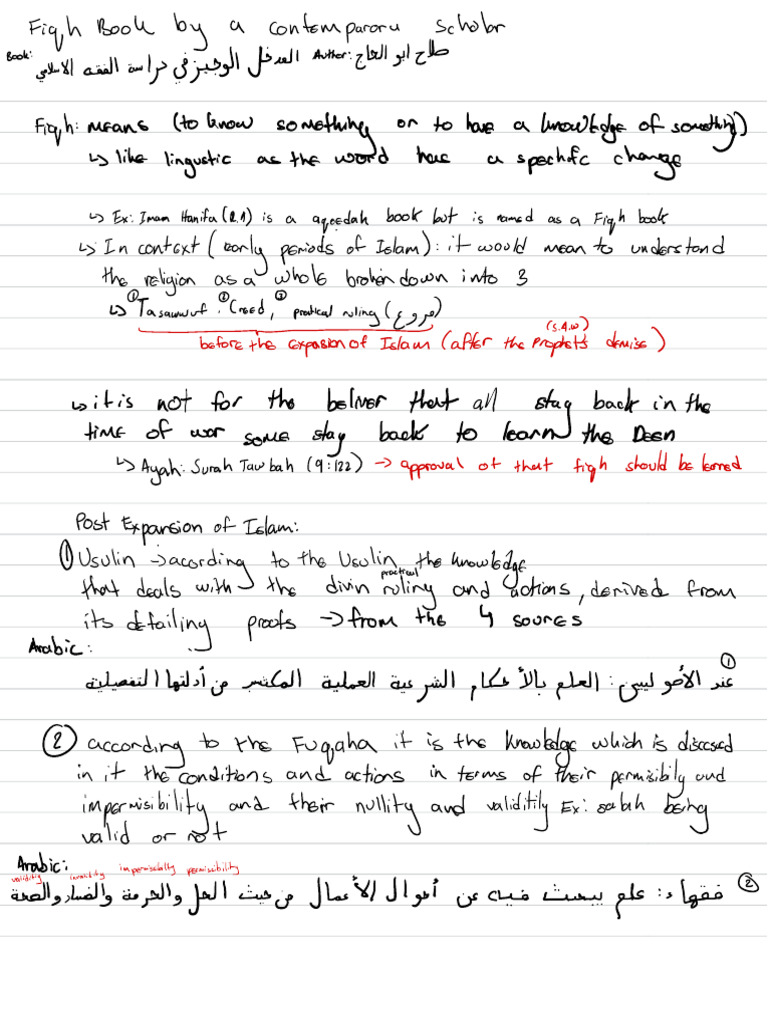 Fiqh Book by a contemparoru Scholar
Book: المدخل الوجيز في دراسة الفقه الاسلامي Author: صلاح ابو الحاج
Fiqh: means (to know something or to have a knowledge of something)
↳ like lingustic as the word has a spechifc change
↳ Ex: Imam Hanifa (R.A) is a aqeedah book but is named as a Fiqh book
↳ In context (early periods of Islam): it would mean to understand
the religion as a whole broken down into 3
↳ ① Tasawwuf, ② Creed, ③ practical ruling (فروع)
before the expasion of Islam (after the Prophets (S.A.W) demise)
↳ it is not for the beliver that all stay back in the
time of war some stay back to learn the Deen
↳ Ayah: Surah Tawbah (9:122) → approval of that fiqh should be learned
Post Expansion of Islam:
① Usulin → acording to the Usulin the knowledge
that deals with the divin practical ruling and actions, derived from
its detailing proofs → from the 4 sources
Arabic:
عند الأصوليين: العلم بالأحكام الشرعية العملية المكتسب من أدلتها التفصيلية ①
② according to the Fuqaha it is the knowledge which is discused
in it the conditions and actions in terms of their permisibily and
impermisibility and their nullity and validitily Ex: salah being
valid or not
Arabic:
validitiy invalidity impermisibility permisibility
فقهاء: علم يبحث فيه عن أحوال الأعمال من حيث الحل والحرمة والفساد والصحة ②